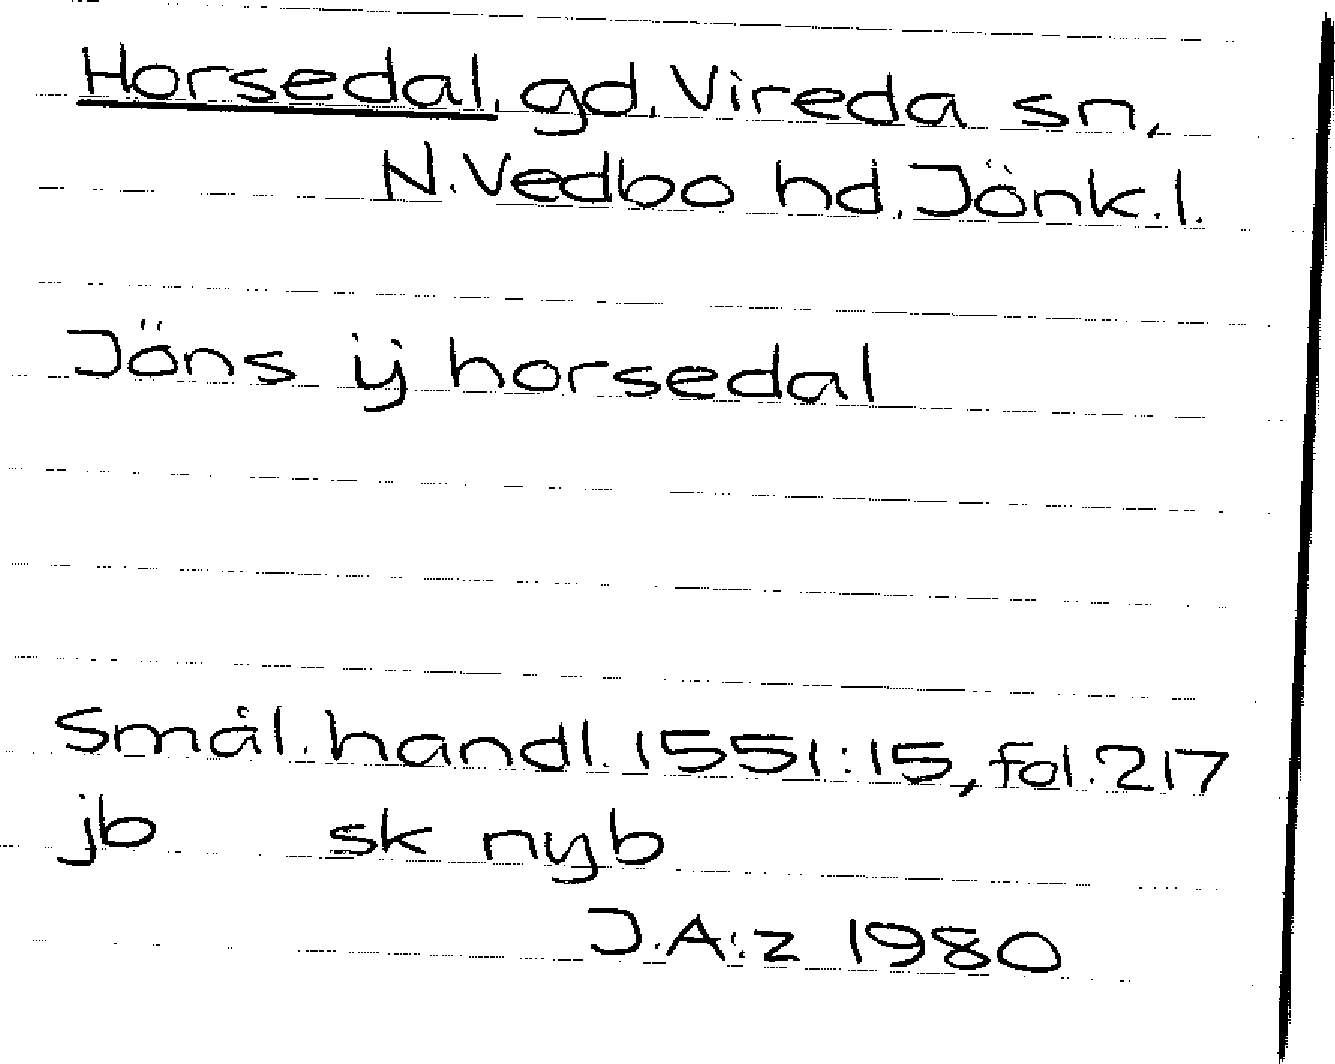 Horsedal, gd, Vireda sn,
N. Vedbo hd, Jönk. l.
Jöns ij horsedal
Smål. handl. 1551:15, fol. 217
jb sk nyb
J.A:z 1980